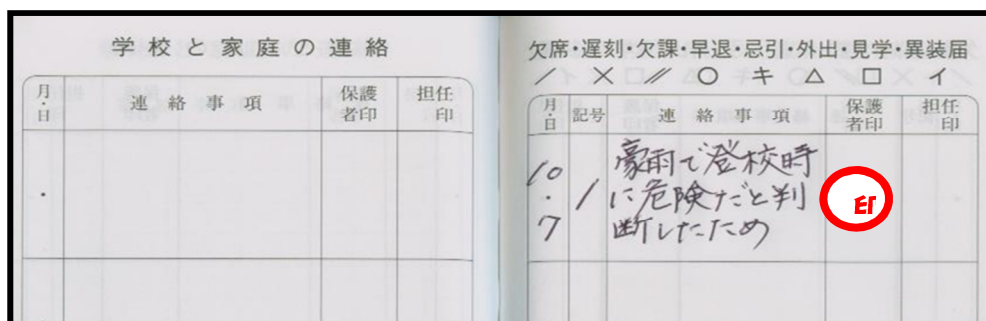 学校と家庭の連絡
月・日 連絡事項 保護者印 担任印
欠席・遅刻・欠課・早退・忌引・外出・見学・異装届
/ × // ○ キ △ □ イ
月・日 記号 連絡事項 保護者印 担任印
10・7 / 豪雨で登校時
に危険だと判
断したため
印